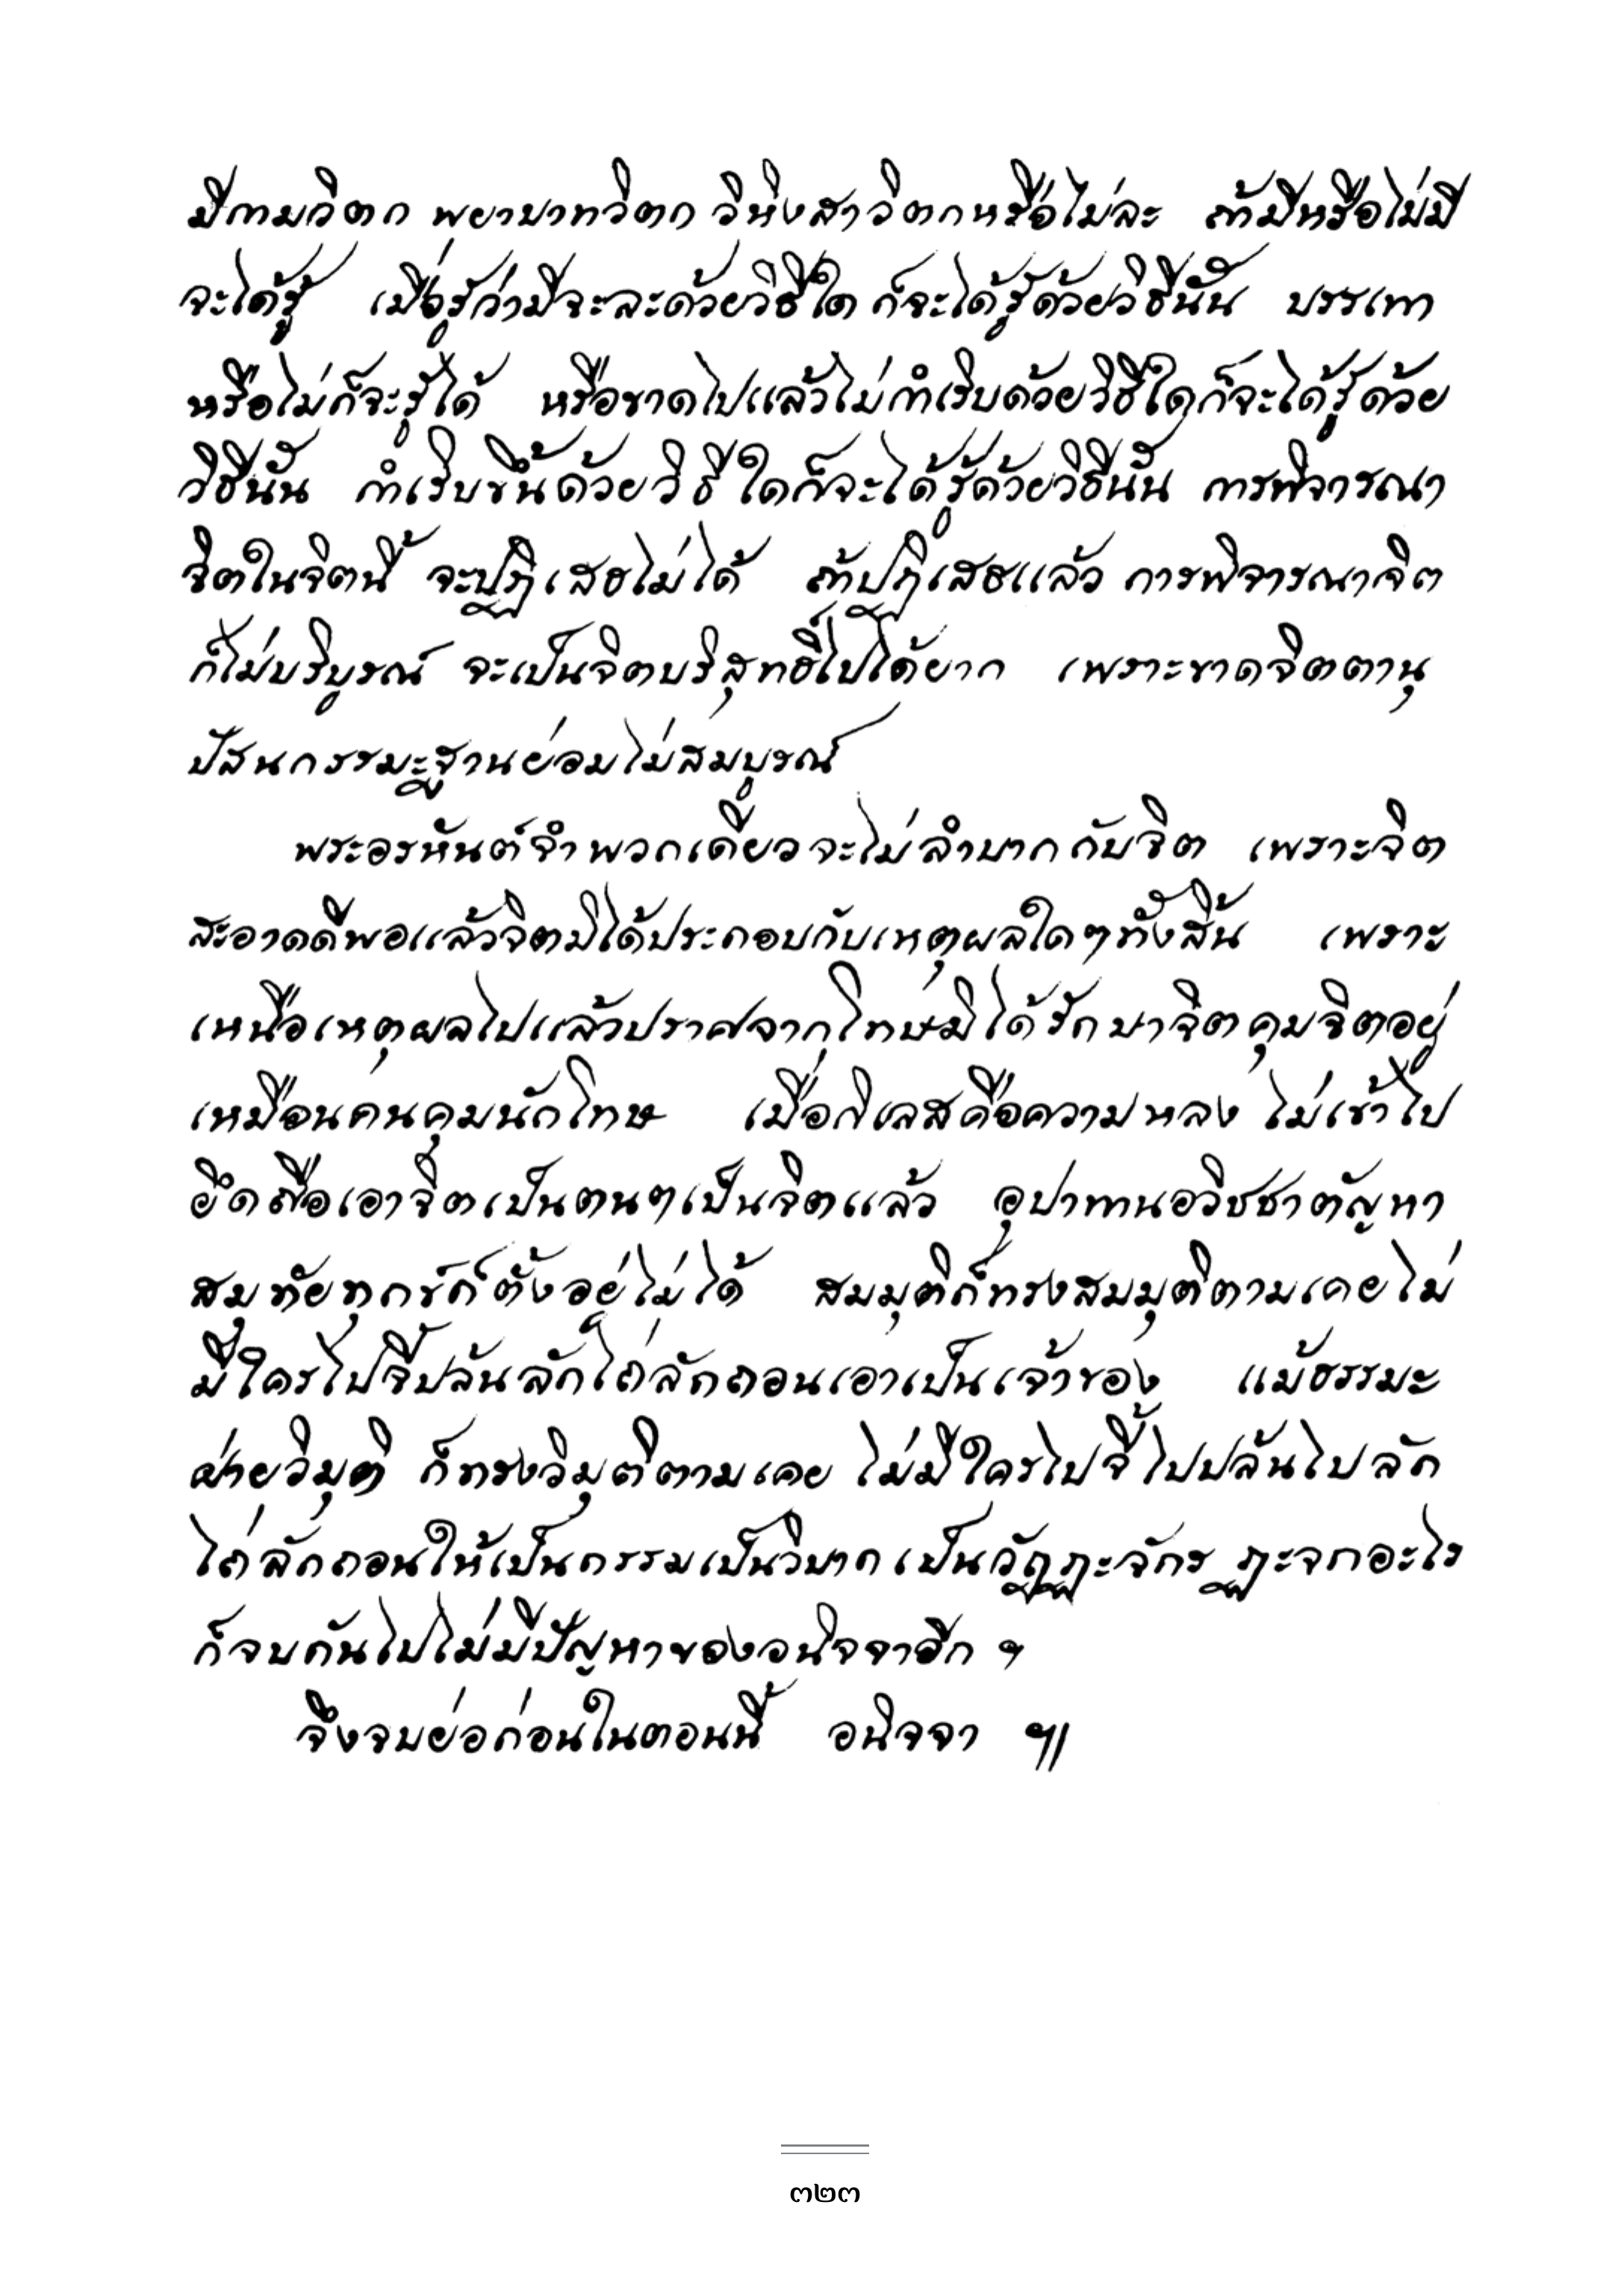 มีกามวิตก พยาบาทวิตก วิหิงสาวิตกหรือไม่ละ ถ้ามีหรือไม่มี
จะได้รู้ เมื่อรู้ว่ามีจะละด้วยวิธีใด ก็จะได้รู้ด้วยวิธีนั้น บรรเทา
หรือไม่ก็จะรู้ได้ หรือขาดไปแล้วไม่กำเริบด้วยวิธีใดก็จะได้รู้ด้วย
วิธีนั้น กำเริบขึ้นด้วยวิธีใดก็จะได้รู้ด้วยวิธีนั้น การพิจารณา
จิตในจิตนี้ จะปฏิเสธไม่ได้ ถ้าปฏิเสธแล้ว การพิจารณาจิต
ก็ไม่บริบูรณ์ จะเป็นจิตบริสุทธิ์ไปได้ยาก เพราะขาดจิตตานุ
ปัสนกรรมะฐานย่อมไม่สมบูรณ์
พระอรหันต์จำพวกเดียวจะไม่ลำบากกับจิต เพราะจิต
สะอาดดีพอแล้วจิตมิได้ประกอบกับเหตุผลใดๆทั้งสิ้น เพราะ
เหนือเหตุผลไปแล้วปราศจากโทษมิได้รักษาจิตคุมจิตอยู่
เหมือนคนคุมนักโทษ เมื่อกิเลสคือความหลง ไม่เข้าไป
ยึดถือเอาจิตเป็นตนๆเป็นจิตแล้ว อุปาทานอวิชชาตัญหา
สมุทัยทุกข์ก็ตั้งอยู่ไม่ได้ สมมุติก็ทรงสมมุติตามเคยไม่
มีใครไปจี้ปล้นลักไถ่ลักถอนเอาเป็นเจ้าของ แม้ธรรมะ
ฝ่ายวิมุติ ก็ทรงวิมุติตามเคย ไม่มีใครไปจี้ไปปล้นไปลัก
ไถ่ลักถอนให้เป็นกรรมเป็นวิบาก เป็นวัฏฏะจักร ฏะจกอะไร
ก็จบกันไปไม่มีปัญหาของอนิจจาอีก ฯ
จึงจบย่อก่อนในตอนนี้ อนิจจา ฯ|
๓๒๓